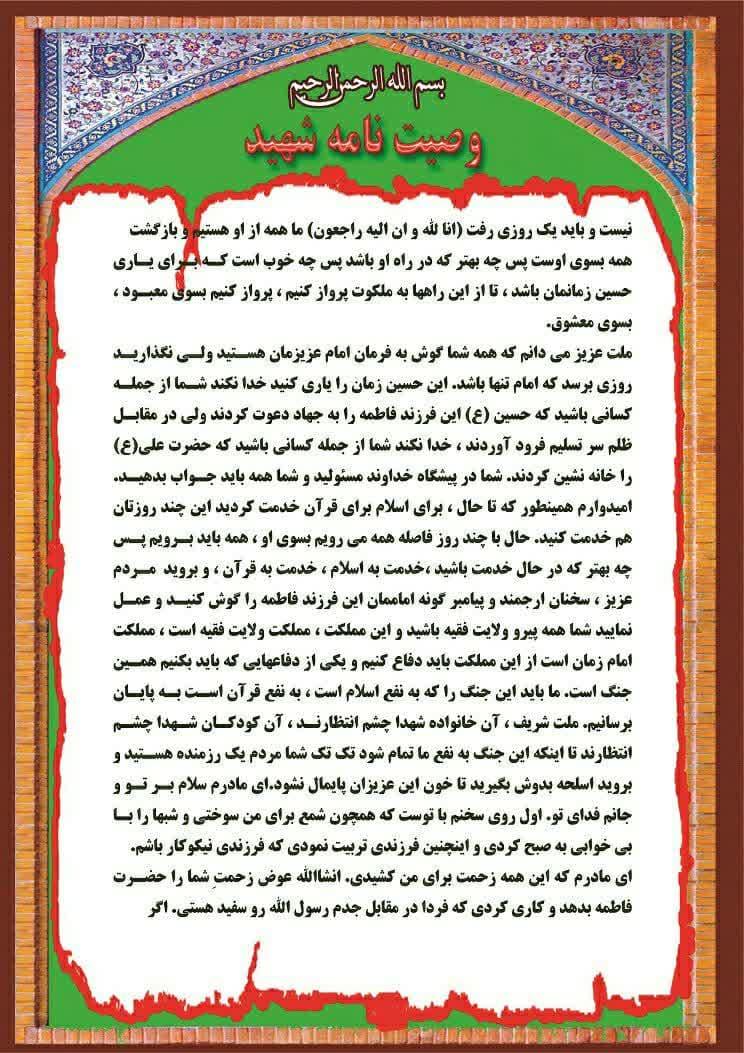 بسم الله الرحمن الرحیم
وصیت نامه شهید
نیست و باید یک روزی رفت (انا لله و ان الیه راجعون) ما همه از او هستیم و بازگشت
همه بسوی اوست پس چه بهتر که در راه او باشد پس چه خوب است که برای یاری
حسین زمانمان باشد ، تا از این راهها به ملکوت پرواز کنیم ، پرواز کنیم بسوی معبود ،
بسوی معشوق.
ملت عزیز می دانم که همه شما گوش به فرمان امام عزیزمان هستید ولی نگذارید
روزی برسد که امام تنها باشد. این حسین زمان را یاری کنید خدا نکند شما از جمله
کسانی باشید که حسین (ع) این فرزند فاطمه را به جهاد دعوت کردند ولی در مقابل
ظلم سر تسلیم فرود آوردند ، خدا نکند شما از جمله کسانی باشید که حضرت علی(ع)
را خانه نشین کردند. شما در پیشگاه خداوند مسئولید و شما همه باید جواب بدهید.
امیدوارم همینطور که تا حال ، برای اسلام برای قرآن خدمت کردید این چند روزتان
هم خدمت کنید. حال با چند روز فاصله همه می رویم بسوی او ، همه باید برویم پس
چه بهتر که در حال خدمت باشید ،خدمت به اسلام ، خدمت به قرآن ، و بروید مردم
عزیز ، سخنان ارجمند و پیامبر گونه اماممان این فرزند فاطمه را گوش کنید و عمل
نمایید شما همه پیرو ولایت فقیه باشید و این مملکت ، مملکت ولایت فقیه است ، مملکت
امام زمان است از این مملکت باید دفاع کنیم و یکی از دفاعهایی که باید بکنیم همین
جنگ است. ما باید این جنگ را که به نفع اسلام است ، به نفع قرآن است به پایان
برسانیم. ملت شریف ، آن خانواده شهدا چشم انتظارند ، آن کودکان شهدا چشم
انتظارند تا اینکه این جنگ به نفع ما تمام شود تک تک شما مردم یک رزمنده هستید و
بروید اسلحه بدوش بگیرید تا خون این عزیزان پایمال نشود.ای مادرم سلام بر تو و
جانم فدای تو. اول روی سخنم با توست که همچون شمع برای من سوختی و شبها را با
بی خوابی به صبح کردی و اینچنین فرزندی تربیت نمودی که فرزندی نیکوکار باشم.
ای مادرم که این همه زحمت برای من کشیدی. انشاالله عوض زحمتِ شما را حضرت
فاطمه بدهد و کاری کردی که فردا در مقابل جدم رسول الله رو سفید هستی. اگر